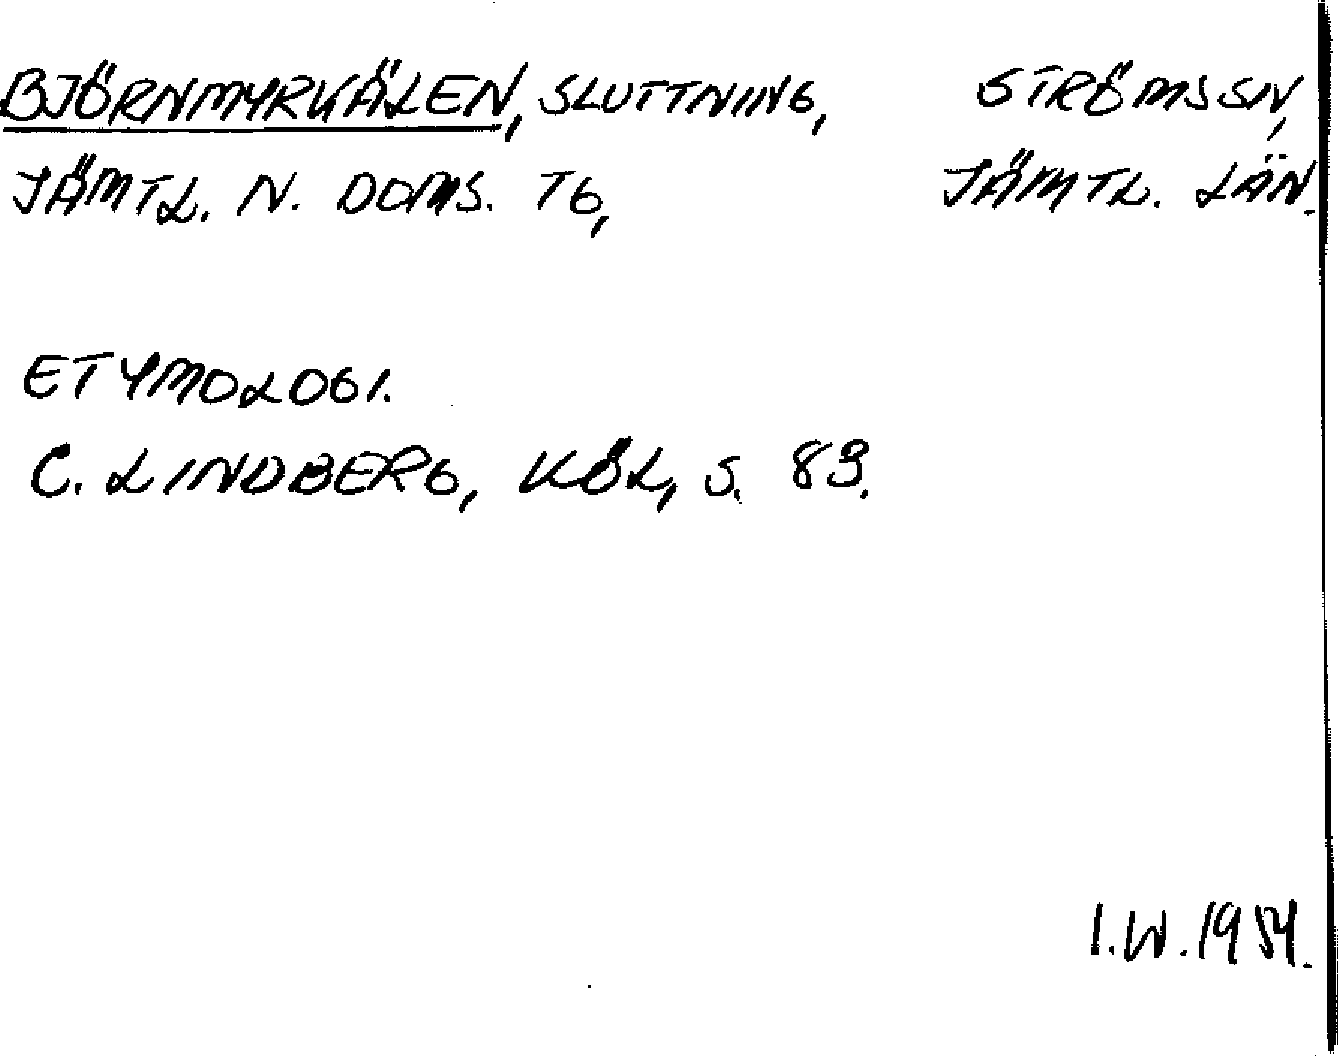 BJÖRNMYRKÄLEN, SLUTTNING, STRÖMS SN,
JÄMTL. N. DOMS. TG, JÄMTL. LÄN.
ETYMOLOGI.
C. LINDBERG, KÖL, S. 89.
I.W. 1954.